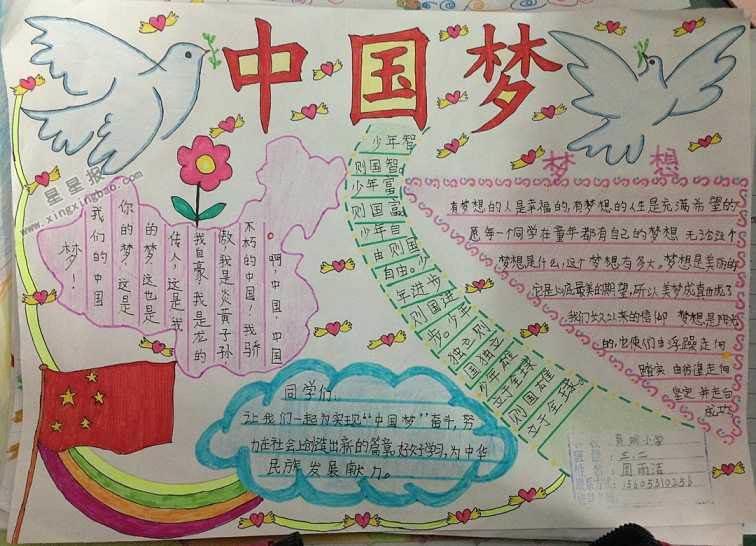 中国梦
星星报
www.xingxingbao.com
啊，中国，中国
不朽的中国！我骄
傲，我是炎黄子孙，
我自豪，我是龙的
传人，这是我
的梦，这也是
你的梦，这是
我们的中国
梦！
少年智
则国智。
少年富
则国富。
少年自
由则国
自由。少
年进步
则国进
步。少年
独立则
国独立
少年雄
立于全球
则国雄
立于全球。
梦想
有梦想的人是幸福的，有梦想的人生是充满希望的
愿每一个同学在童年都有自己的梦想 无论这个
梦想是什么，这个梦想有多大。梦想是美丽的
它是心底最美的期望，所以美梦成真也成了
我们长久以来的信仰 梦想是阳光
的，它使们由浮躁走向
踏实 由彷徨走向
坚定 并走向
成功
同学们，
让我们一起为实现“中国梦”奋斗，努
力在社会上创造出新的篇章，好好学习，为中华
民族发展献力。
小学
三.二